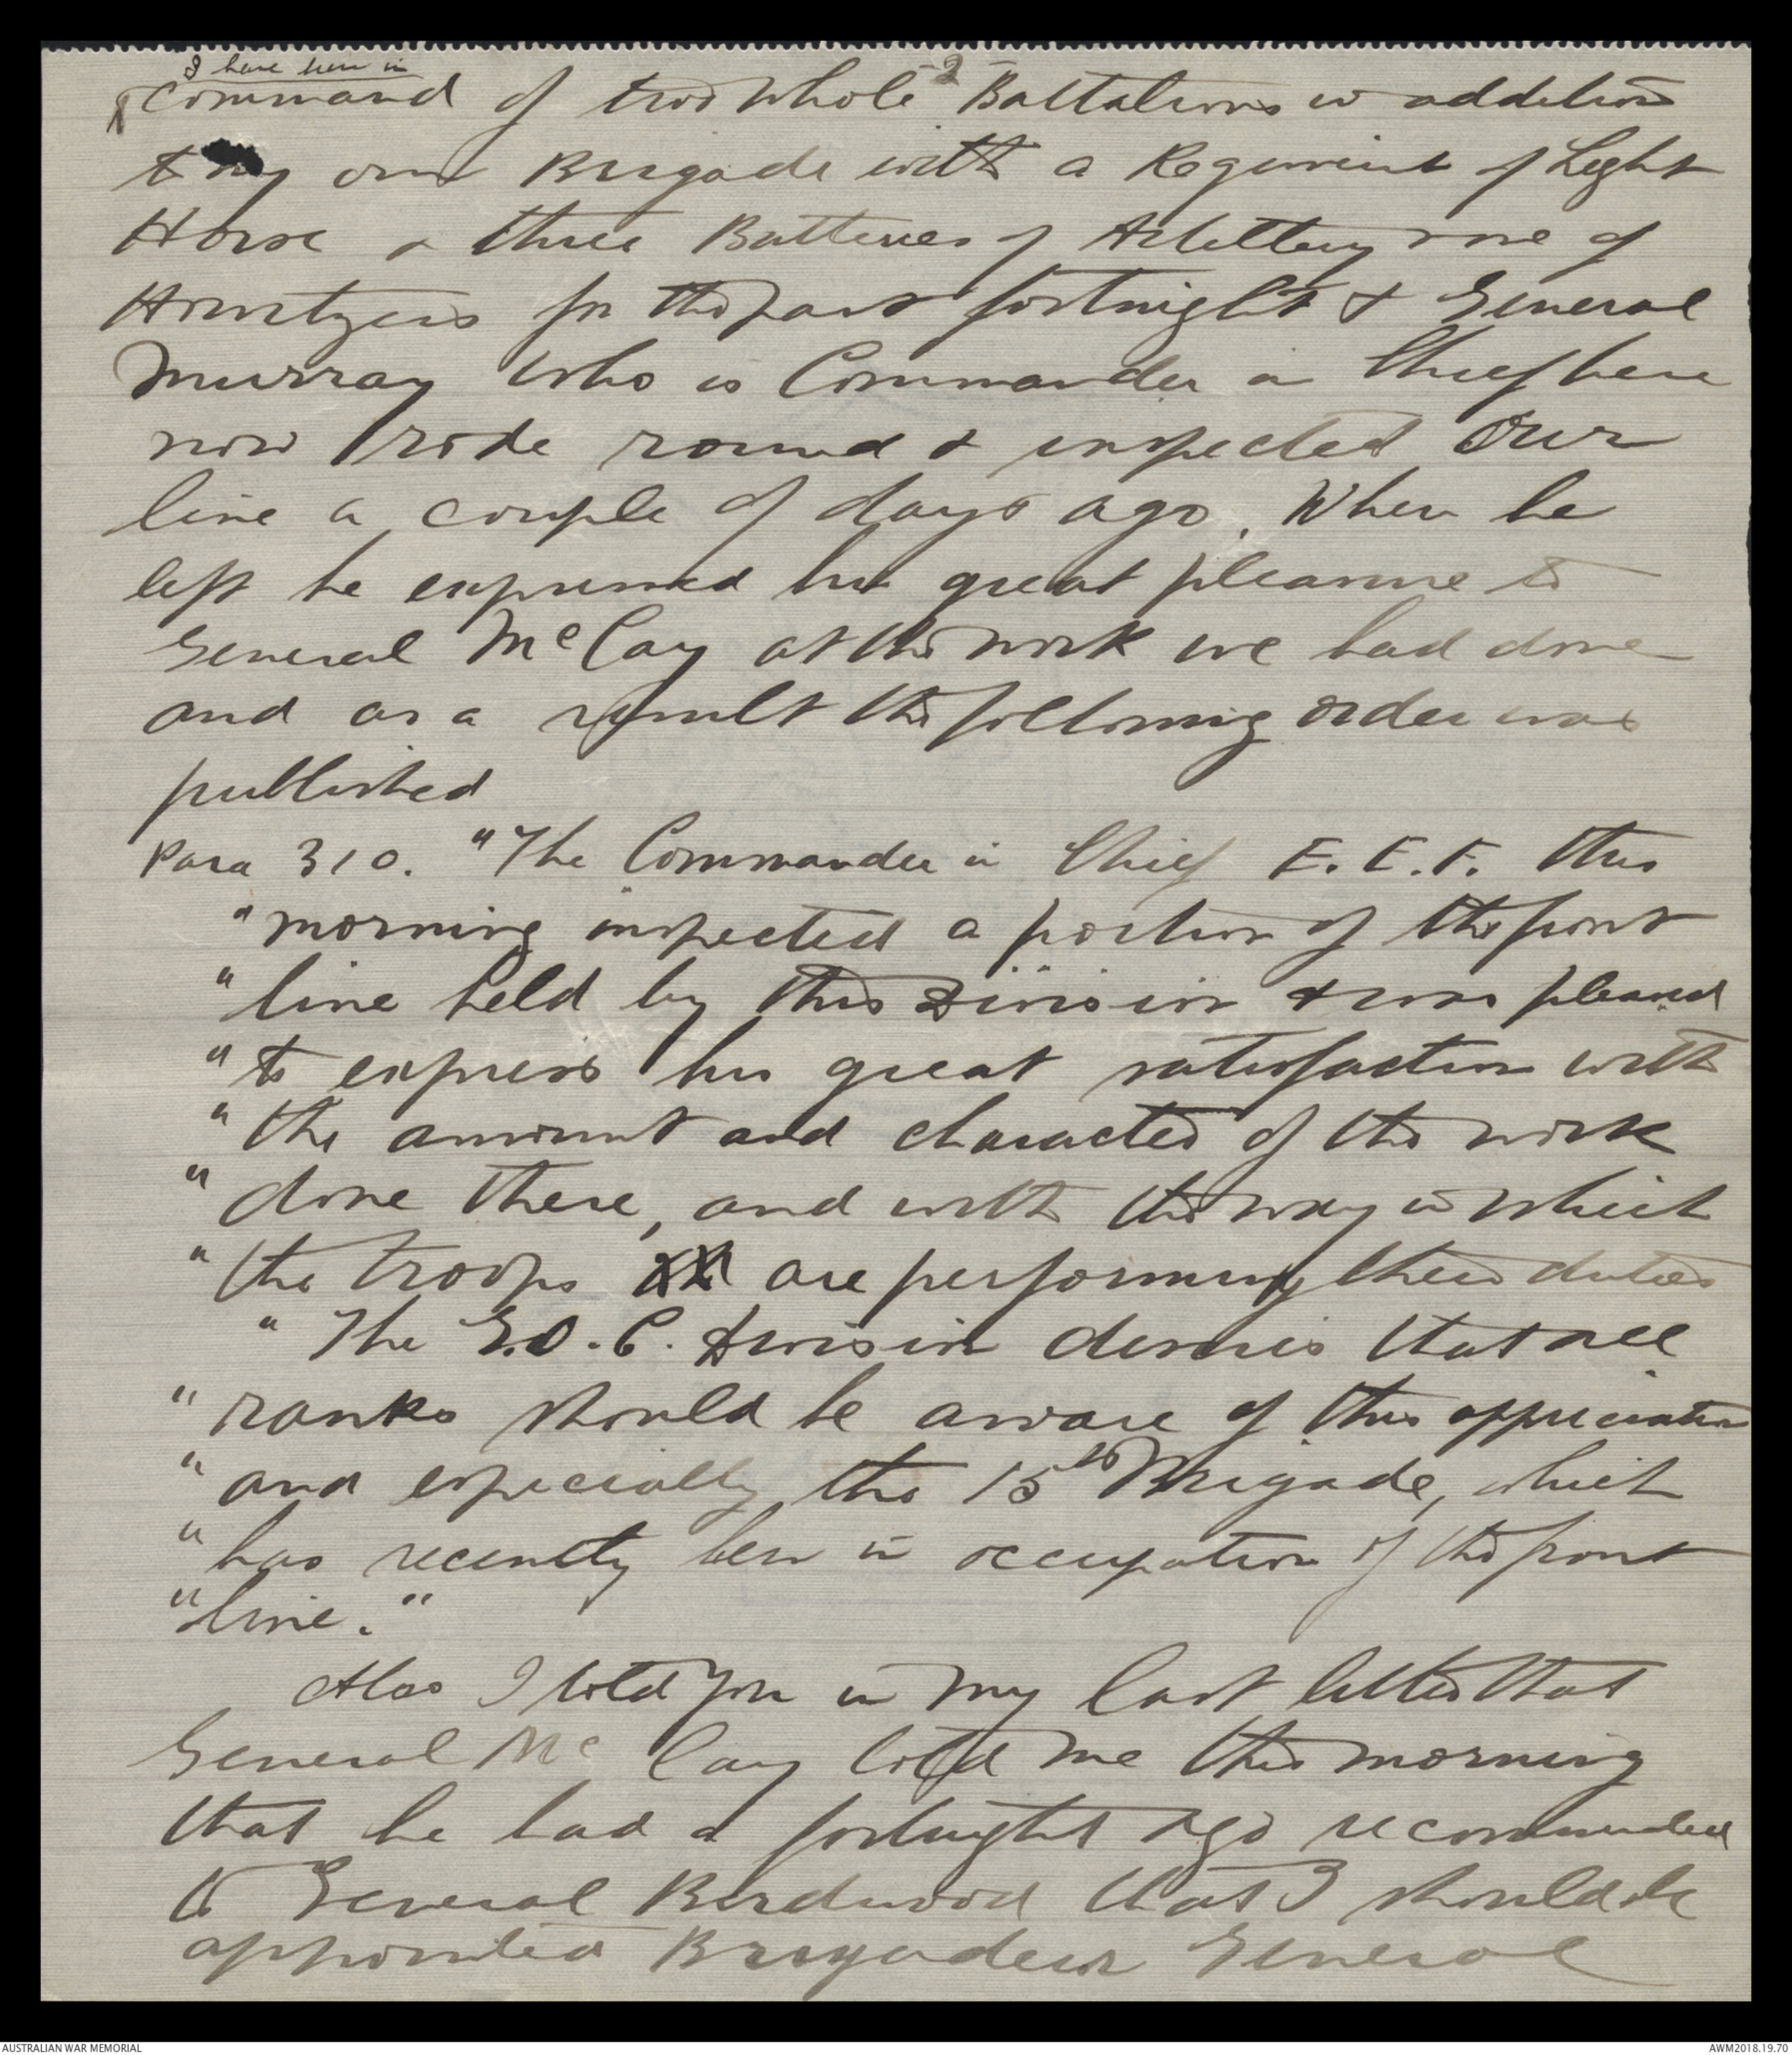 -2-
I have been in
command of two whole Battalions in addition
to my own Brigade with a Regiment of Light
Horse & three Batteries of Artillery & one of
Howitzers for the past fortnight & General
Murray who is Commander in Chief here
now rode round & inspected our
line a couple of days ago. When he
left he expressed his great pleasure to
General McCay at the work we had done
and as a result the following order was
published
Para 310. "The Commander in Chief E.E.F. this
"morning inspected a portion of the front
"line held by this Division & was pleased
"to express his great satisfaction with
"the amount and character of the work
"done there, and with the way in which
"the troops are performing their duties
"The G.O.C. Division desires that all
"ranks should be aware of this appreciation
"and especially the 15th Brigade, which
"has recently been in occupation of the front
"line."
Also I told you in my last letter that
General McCay told me this morning
that he had a fortnight ago recommended
to General Birdwood that I should be
appointed Brigadier General
AUSTRALIAN WAR MEMORIAL
AWM2018.19.70